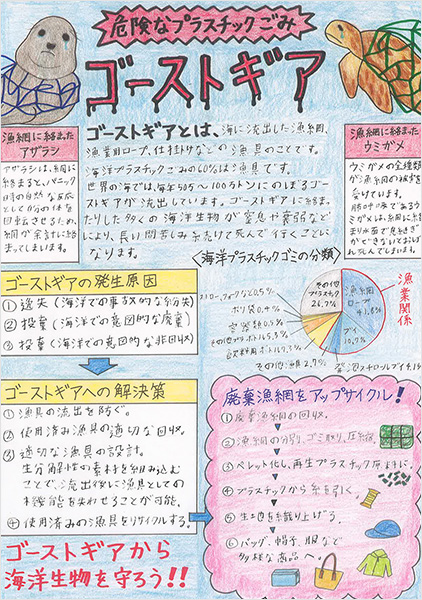 危険なプラスチックごみ
ゴーストギア
漁網に絡まった
アザラシ
アザラシは、網に
絡まると、パニック
時の自然な反応
としてからの体を
回転させるため、
網が余計に絡
まってしまいます。
ゴーストギアとは、海に流出した漁網、
漁業用ロープ、仕掛けなどの漁具のことです。
海洋プラスチックごみの60%は漁具です。
世界の海では、毎年50万～100万トンにのぼるゴー
ストギアが流出しています。ゴーストギアに絡ま
ったりした多くの海洋生物が窒息や衰弱など
により、長い間苦しみ続けて死んで行くことに
なります。
漁網に絡まった
ウミガメ
ウミガメの全種類
が漁網の被害を
受けています。
肺呼吸であるウ
ミガメは、網に絡
まり水面で息継ぎ
ができないとおぼれ
死んでしまいます。
〈海洋プラスチックゴミの分類〉
その他
プラスチック
26.7%
漁網
ロープ
41.8%
ブイ
10.7%
漁業関係
ストロー、フォークなど0.5%
ポリ袋 0.4%
容器類0.5%
その他ボトル5.3%
飲料用ボトル7.3%
その他漁具2.7%
発泡スチロールブイ
ゴーストギアの発生原因
①逸失(海洋での事故的な紛失)
②投棄(海洋での意図的な廃棄)
③投棄(海洋での意図的な非回収)
ゴーストギアへの解決策
①漁具の流出を防ぐ。
②使用済み漁具の適切な回収。
③適切な漁具の設計。
生分解性の素材を組み込む
ことで、流出後に漁具としての
機能を失わせることが可能。
④使用済みの漁具をリサイクルする。
ゴーストギアから
海洋生物を守ろう!!
廃棄漁網をアップサイクル!
①廃棄漁網の回収。
②漁網の分別、ゴミ取り、圧縮。
③ペレット化し、再生プラスチック原料に。
④プラスチックから糸を引く。
⑤生地を織り上げる。
⑥バッグ、帽子、服など
多様な商品へ。